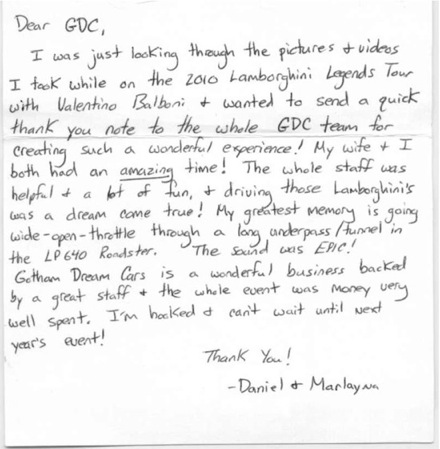 Dear GDC,
I was just looking through the pictures + videos
I took while on the 2010 Lamborghini Legends Tour
with Valentino Balboni + wanted to send a quick
thank you note to the whole GDC team for
creating such a wonderful experience! My wife + I
both had an amazing time! The whole staff was
helpful + a lot of fun, + driving those Lamborghini's
was a dream come true! My greatest memory is going
wide-open-throttle through a long underpass/tunnel in
the LP640 Roadster. The sound was EPIC!
Gotham Dream Cars is a wonderful business backed
by a great staff + the whole event was money very
well spent. I'm hooked + can't wait until next
year's event!
Thank You!
-Daniel + Marlayna